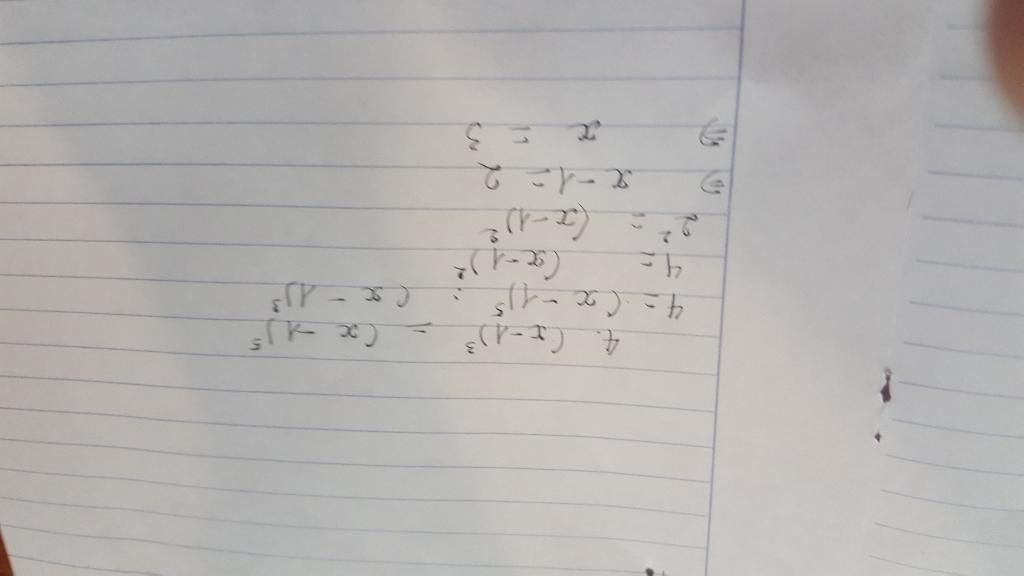 4. (x-1)³ = (x-1)⁵
4 = (x-1)⁵ : (x-1)³
4 = (x-1)²
2² = (x-1)²
⇒ x-1 = 2
⇒ x = 3